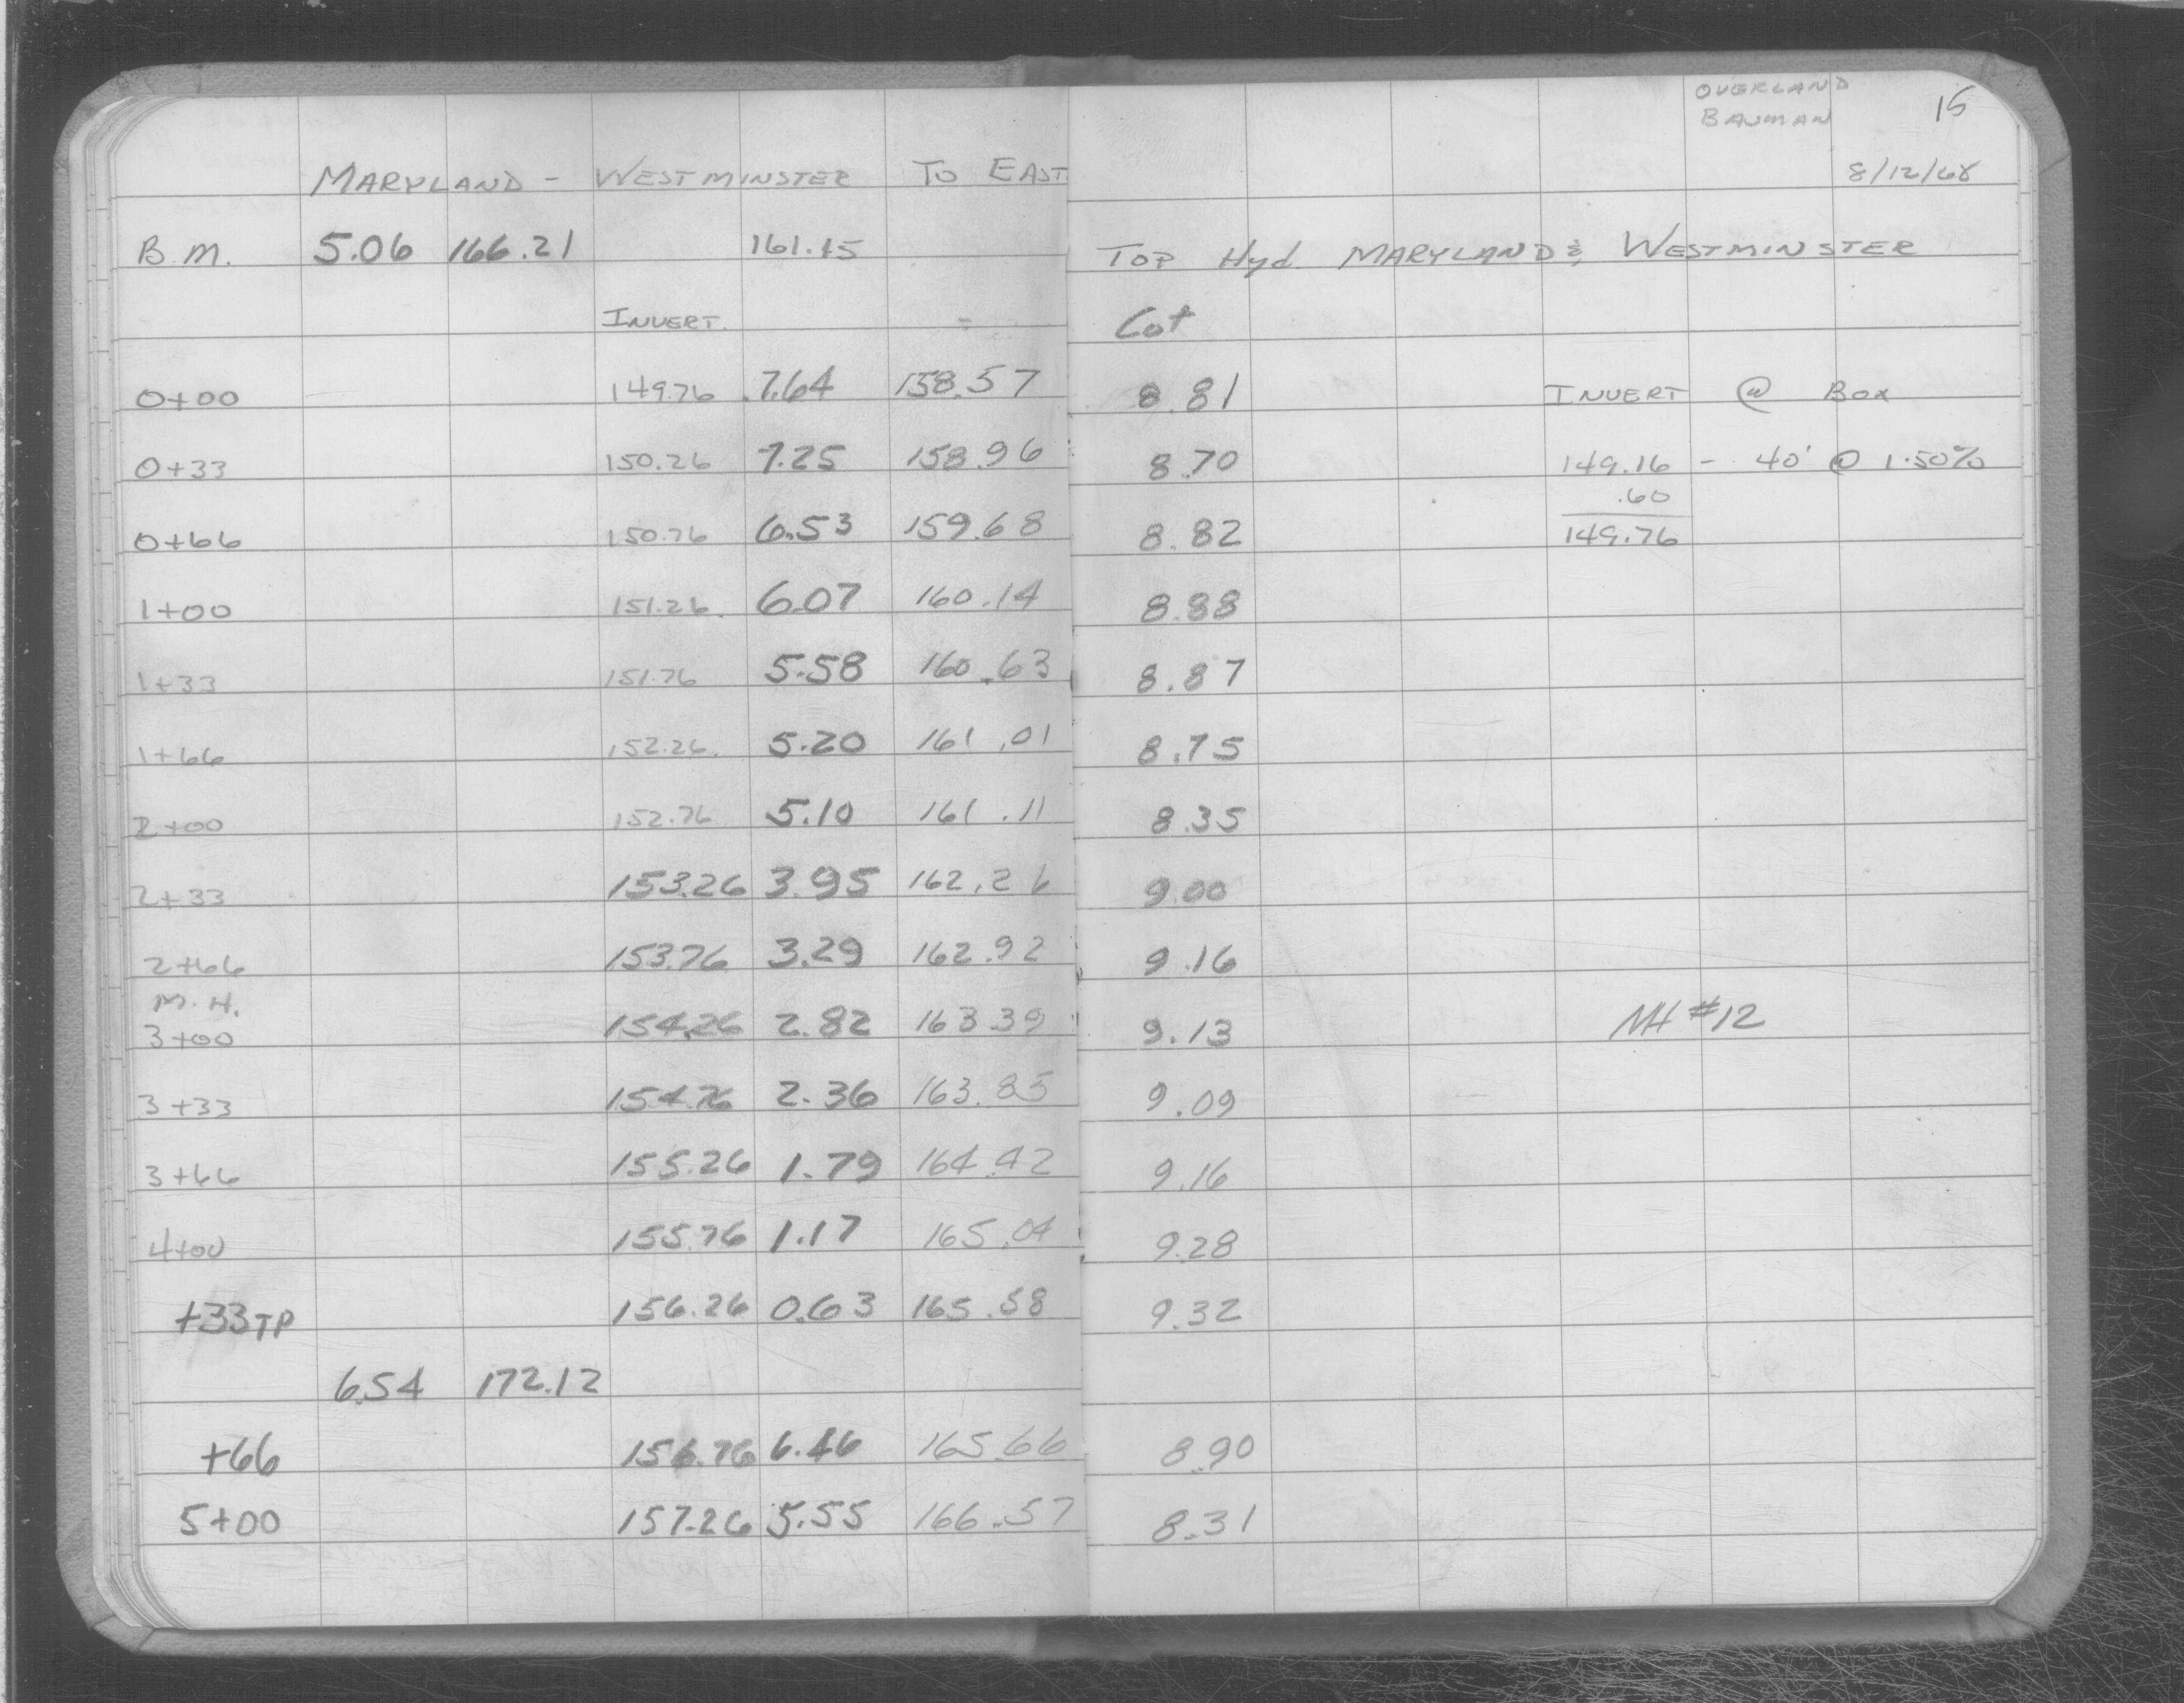 OVERLAND
BAUMAN
15
MARYLAND - WESTMINSTER TO EAST 8/12/68
B.M. 5.06 166.21 161.15 TOP Hyd. MARYLAND & WESTMINSTER
INVERT. Cut
0+00 149.76 7.64 158.57 8.81 INVERT @ BOX
0+33 150.26 7.25 158.96 8.70 149.16 - 40' @ 1.50%
.60
0+66 150.76 6.53 159.68 8.82 149.76
1+00 151.26 6.07 160.14 8.88
1+33 151.76 5.58 160.63 8.87
1+66 152.26 5.20 161.01 8.75
2+00 152.76 5.10 161.11 8.35
2+33 153.26 3.95 162.26 9.00
2+66 153.76 3.29 162.92 9.16
M.H.
3+00 154.26 2.82 163.39 9.13 MH #12
3+33 154.76 2.36 163.85 9.09
3+66 155.26 1.79 164.42 9.16
4+00 155.76 1.17 165.04 9.28
+33 TP 156.26 0.63 165.58 9.32
6.54 172.12
+66 156.76 6.46 165.66 8.90
5+00 157.26 5.55 166.57 8.31